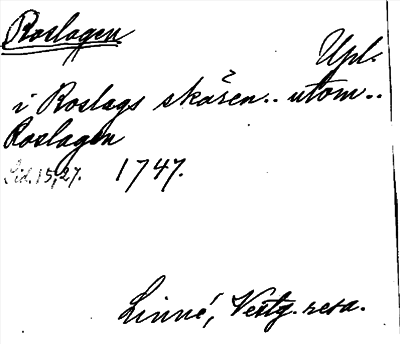 Roslagen
Upl.
i Roslags skären.. utom..
Roslagen
Sid. 15, 27. 1747.
Linné, Vestg. resa.